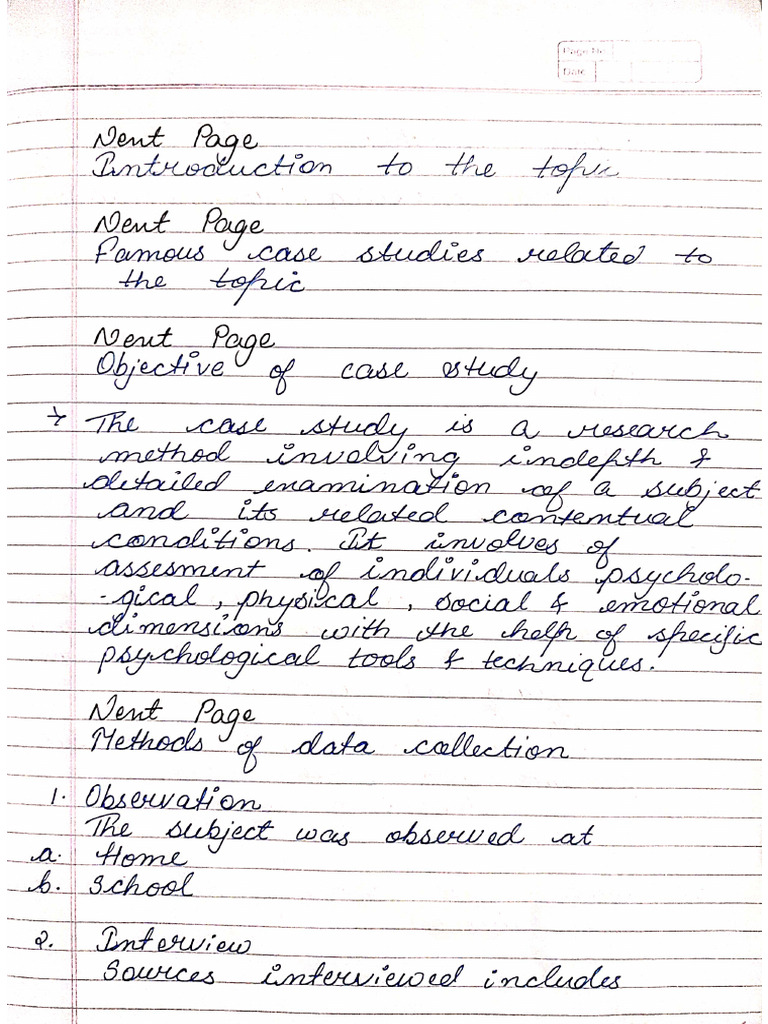 Page No.
Date
Next Page
Introduction to the topic
Next Page
Famous case studies related to
the topic
Next Page
Objective of case study
→ The case study is a research
method involving indepth &
detailed examination of a subject
and its related contextual
conditions. It involves of
assesment of individuals psycholo-
-gical, physical, social & emotional
dimensions with the help of specific
psychological tools & techniques.
Next Page
Methods of data collection
1. Observation
The subject was observed at
a. Home
b. School
2. Interview
Sources interviewed includes